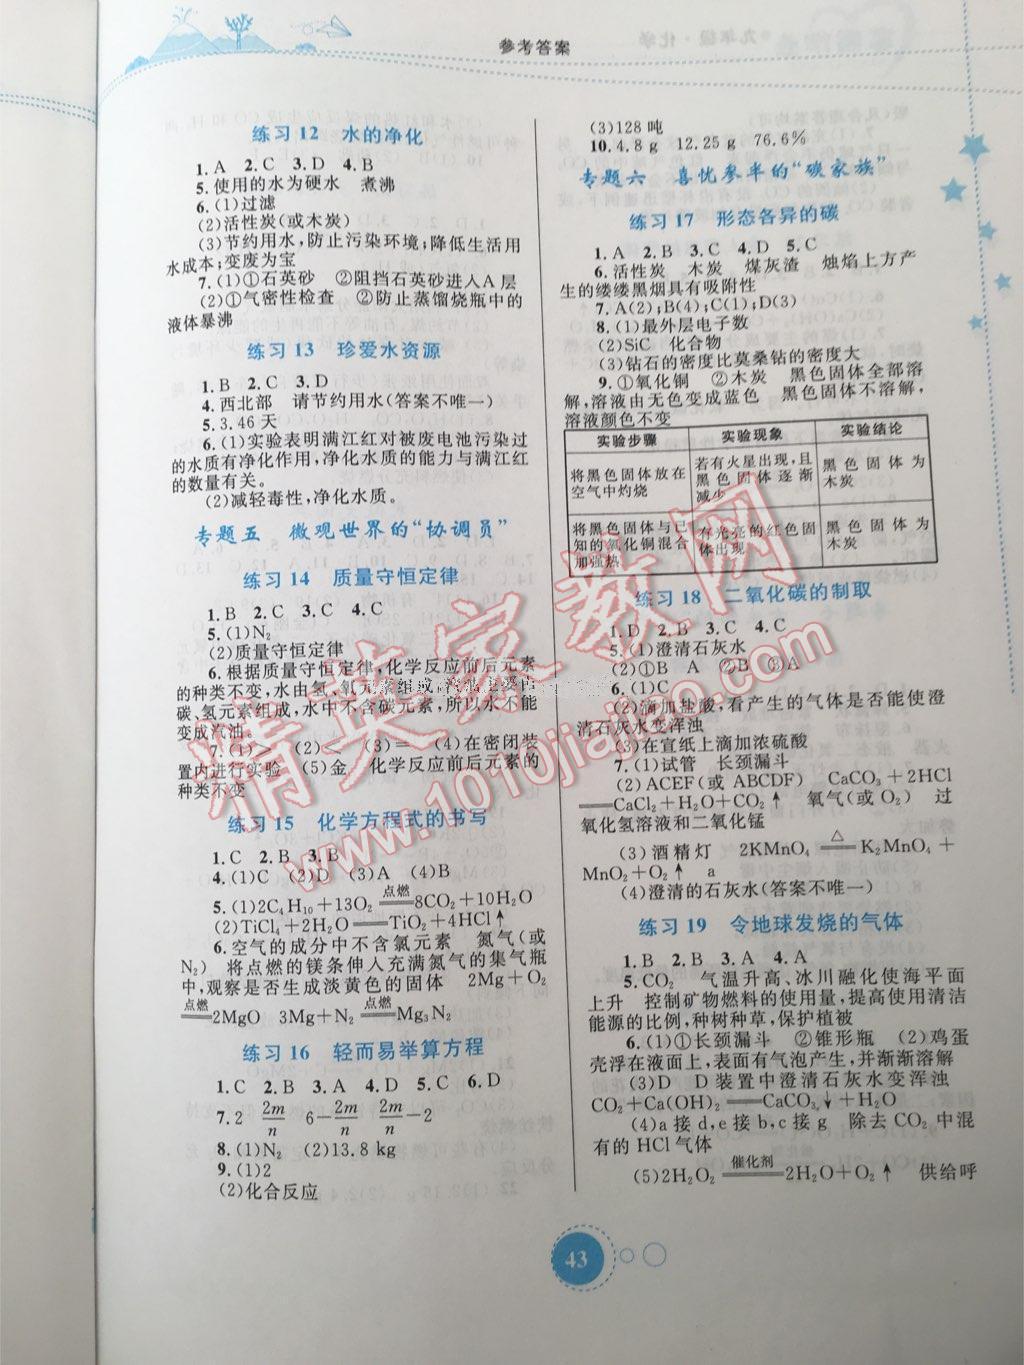 参考答案
练习12 水的净化
1.A 2.C 3.D 4.B
5.使用的水为硬水 煮沸
6.(1)过滤
(2)活性炭(或木炭)
(3)节约用水,防止污染环境;降低生活用
水成本;变废为宝
7.(1)①石英砂 ②阻挡石英砂进入A层
(2)①气密性检查 ②防止蒸馏烧瓶中的
液体暴沸
练习13 珍爱水资源
1.B 2.C 3.D
4.西北部 请节约用水(答案不唯一)
5.3.46天
6.(1)实验表明满江红对被废电池污染过
的水质有净化作用,净化水质的能力与满江红
的数量有关。
(2)减轻毒性,净化水质。
专题五 微观世界的“协调员”
练习14 质量守恒定律
1.B 2.C 3.C 4.C
5.(1)N₂
(2)质量守恒定律
6.根据质量守恒定律,化学反应前后元素
的种类不变,水由氢、氧元素组成,汽油主要由
碳、氢元素组成,水中不含碳元素,所以水不能
变成汽油。
7.(1)> (2)< (3)= (4)在密闭装
置内进行实验 (5)金 化学反应前后元素的
种类不变
练习15 化学方程式的书写
1.C 2.B 3.B
4.(1)C (2)D (3)A (4)B
5.(1)2C₄H₁₀+13O₂ 点燃══ 8CO₂+10H₂O
(2)TiCl₄+2H₂O══TiO₂+4HCl↑
6.空气的成分中不含氯元素 氮气(或
N₂) 将点燃的镁条伸人充满氮气的集气瓶
中,观察是否生成淡黄色的固体 2Mg+O₂
点燃══2MgO 3Mg+N₂ 点燃══ Mg₃N₂
练习16 轻而易举算方程
1.C 2.B 3.A 4.D 5.C 6.D
7.2 2m/n 6-2m/n 2m/n-2
8.(1)N₂ (2)13.8 kg
9.(1)2
(2)化合反应
(3)128吨
10.4.8 g 12.25 g 76.6%
专题六 喜忧参半的“碳家族”
练习17 形态各异的碳
1.A 2.B 3.C 4.D 5.C
6.活性炭 木炭 煤灰渣 烛焰上方产
生的缕缕黑烟具有吸附性
7.A(2);B(4);C(1);D(3)
8.(1)最外层电子数
(2)SiC 化合物
(3)钻石的密度比莫桑钻的密度大
9.①氧化铜 ②木炭 黑色固体全部溶
解,溶液由无色变成蓝色 黑色固体不溶解,
溶液颜色不变
实验步骤 实验现象 实验结论
将黑色固体放在空气中灼烧 若有火星出现,且黑色固体逐渐减少 黑色固体为木炭
将黑色固体与已知的氧化铜混合加强热 有光亮的红色固体出现 黑色固体为木炭
练习18 二氧化碳的制取
1.D 2.B 3.C 4.C
5.(1)澄清石灰水
(2)①B A ②B ③A
6.(1)C
(2)滴加盐酸,看产生的气体是否能使澄
清石灰水变浑浊
(3)在宣纸上滴加浓硫酸
7.(1)试管 长颈漏斗
(2)ACEF(或ABCDF) CaCO₃+2HCl
══CaCl₂+H₂O+CO₂↑ 氧气(或O₂) 过
氧化氢溶液和二氧化锰
(3)酒精灯 2KMnO₄ △══ K₂MnO₄+
MnO₂+O₂↑ a
(4)澄清的石灰水(答案不唯一)
练习19 令地球发烧的气体
1.B 2.B 3.A 4.A
5.CO₂ 气温升高、冰川融化使海平面
上升 控制矿物燃料的使用量,提高使用清洁
能源的比例,种树种草,保护植被
6.(1)①长颈漏斗 ②锥形瓶 (2)鸡蛋
壳浮在液面上,表面有气泡产生,并渐渐溶解
(3)D D装置中澄清石灰水变浑浊
CO₂+Ca(OH)₂══CaCO₃↓+H₂O
(4)a接d,e接b,c接g 除去CO₂中混
有的HCl气体
(5)2H₂O₂ 催化剂══ 2H₂O+O₂↑ 供给呼
43
精英家教网
www.1010jiajiao.com